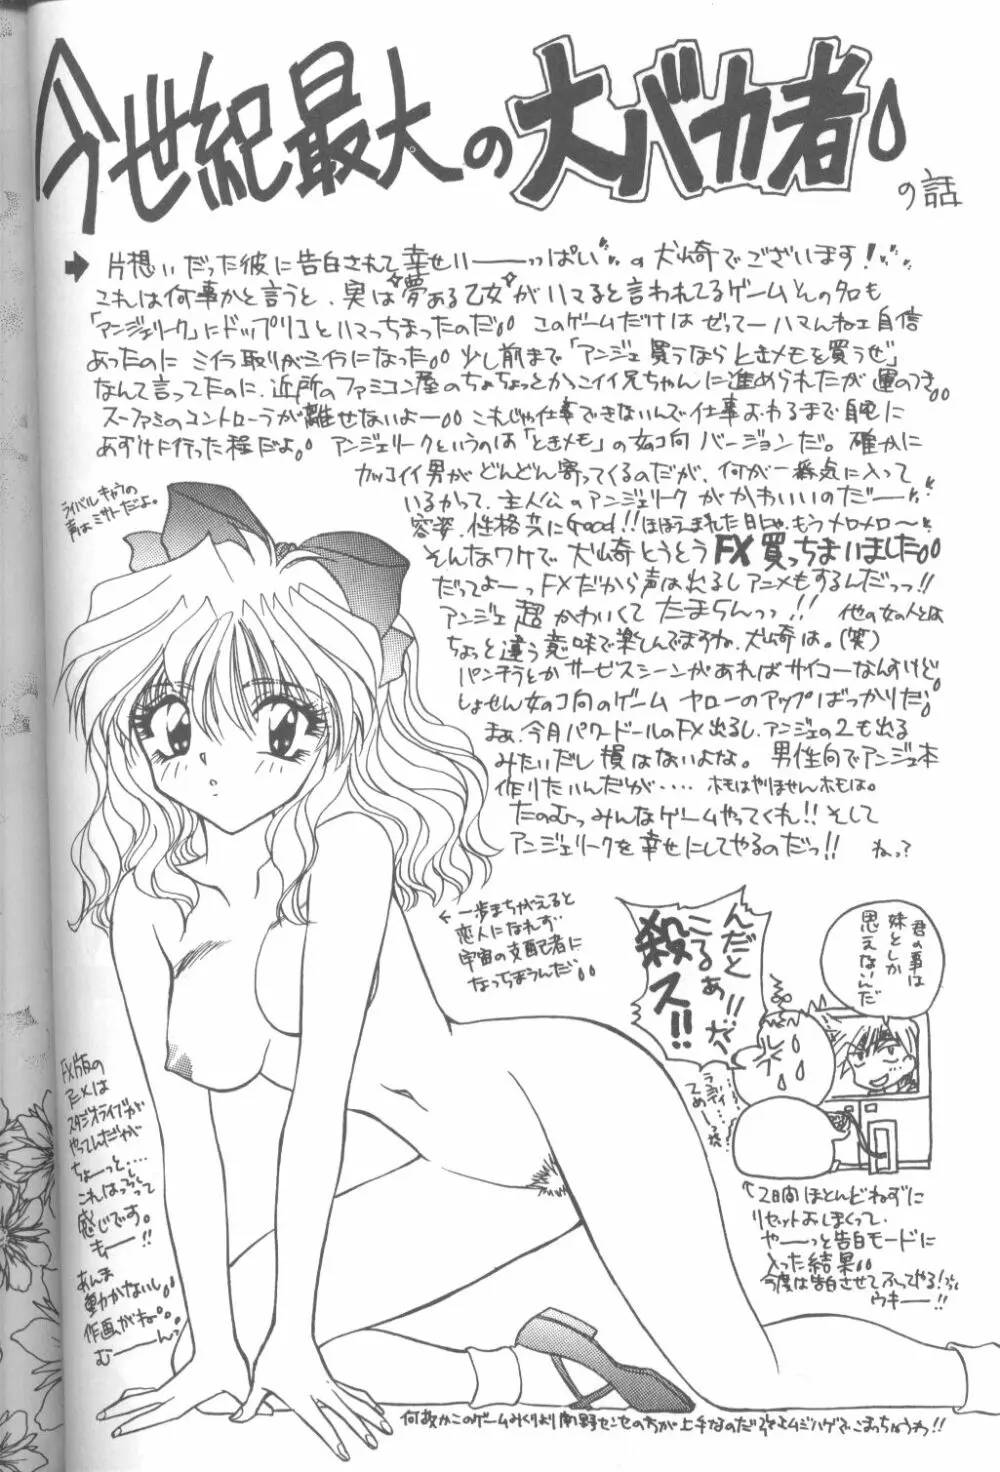 今世紀最大の大バカ者
の話
片想いだった彼に告白されて幸せいーーっぱいの犬崎でございます!
これは何事かと言うと、実は夢ある乙女がハマると言われてるゲーム
「アンジェリーク」にドップリコとハマっちまったのだ。。このゲームだけはぜってーハマんねェ自信
あったのにミイラ取りがミイラになった。。少し前まで「アンジェ買うならときメモを買うぜ」
なんて言ってたのに、近所のファミコン屋のちょちょっとかっこイイ兄ちゃんに進められたが運のつき。。
スーファミのコントローラが離せないよー。。これじゃ仕事できないんで仕事おわるまで自宅に
あずけに行った程だよ。アンジェリークというのは「ときメモ」の女コ向バージョンだ。確かに
カッコイイ男がどんどん寄ってくるのだが、何が一番気に入って
いるかって、主人公のアンジェリークがかわいいのだーー
容姿、性格共にGood!!もうメロメロ〜
そんなワケで犬崎とうとうFX買っちまいました。。
だってよーっFXだから声は出るしアニメもするんだっっ!!
アンジェ超かわいくてたまらんっっ!!他の女の人とは
ちょっと違う意味で楽しんでますね、犬崎は。(笑)
パンチラとかサービスシーンがあればサイコーなんすけど
しょせん女のコ向のゲームヤローのアップばっかりだ。
まぁ、今月パワードールのFX出るし、アンジェの2も出る
みたいだし損はないよな。男性向でアンジェ本
作りたいんだが・・・・ホモはやりませんホモは。
たのむっみんなゲームやってくれ!!そして
アンジェリークを幸せにしてやるのだっ!! ねっ?
ライバルキャラの
声はミサトだよ。
←一歩まちがえると
恋人になれず
宇宙の支配者に
なっちまうんだ。。
んだと
こるぁ!!
殺ス!!
君の事は
妹としか
思えないんだ
FX版の
アニメは
スタジオライブが
やってんだが
ちょーっと・・・・
これはっって
感じです。
もーー!!
あんま
動かないし。。
作画がね。。
むーーんっ
↑2日間ほとんどねずに
リセットおしまくって、
やーーっと告白モードに
入った結果。。
今度は告白させてふってやる!
ウキーー!!